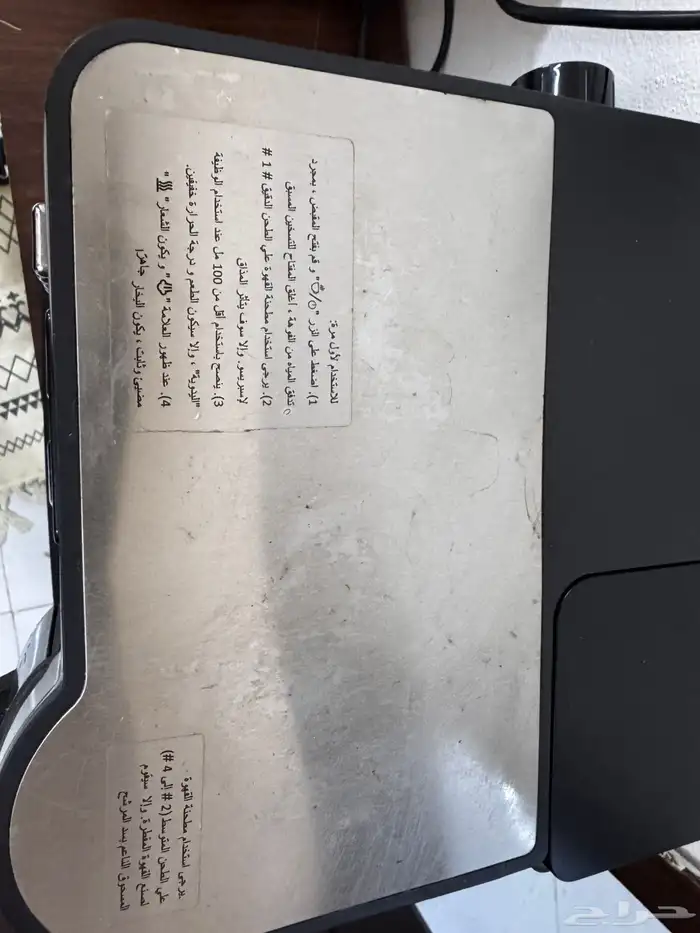 للاستخدام لأول مرة:
1). اضغط على الزر " / " و قم بفتح المقبض ، بمجرد
تدفق المياه من الفوهة ، أغلق المفتاح للتسخين المسبق
2). يرجى استخدام مطحنة القهوة على الطحن الدقيق # 1 #
لإسبريسو. وإلا سوف يتأثر المذاق
3). ينصح باستخدام أقل من 100 مل عند استخدام الوظيفة
"اليدوية" ، وإلا سيكون الطعم و درجة الحرارة خفيفين.
4). عند ظهور العلامة " " و يكون الشعار " "
مضيئ وثابت ، يكون البخار جاهزا
يرجى استخدام مطحنة القهوة
على الطحن المتوسط (2 # إلى 4 #)
لصنع القهوة المقطرة. وإلا سيقوم
المسحوق الناعم بسد المرشح
حراج